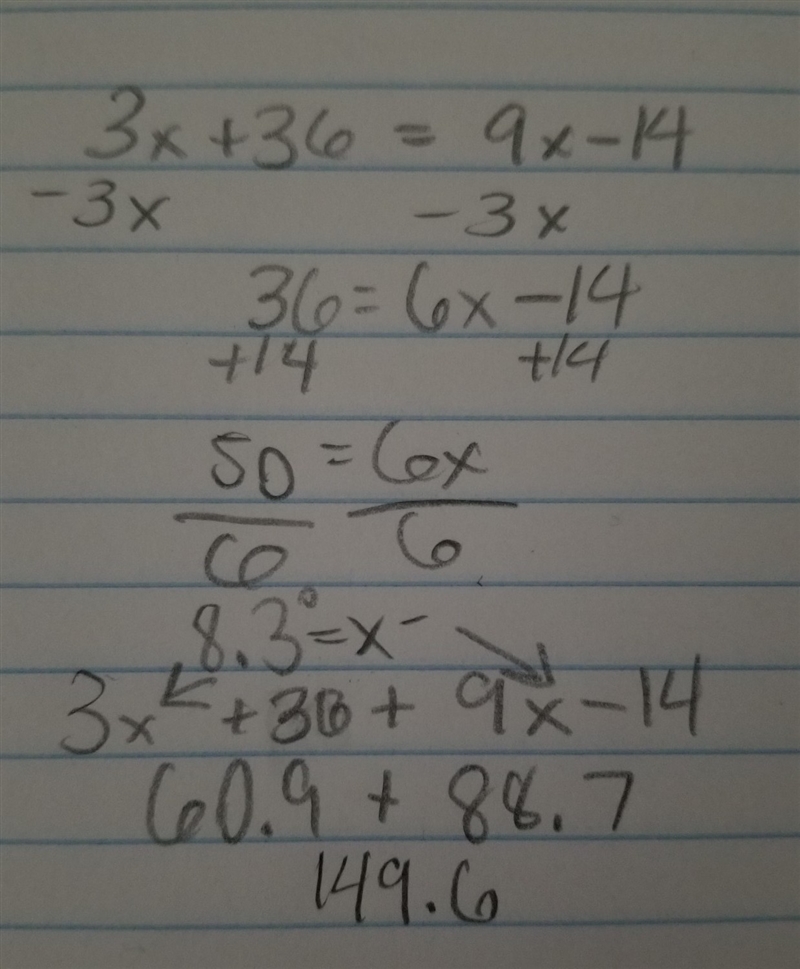 3x + 36 = 9x - 14
-3x -3x
36 = 6x - 14
+14 +14
50 = 6x
6 6
8.3° = x
3x + 36 + 9x - 14
60.9 + 88.7
149.6